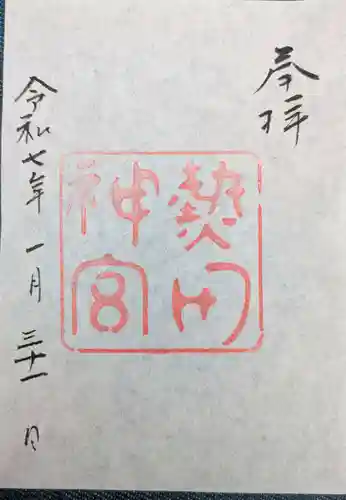 奉拝
熱田
神宮
令和七年 一月 三十一日